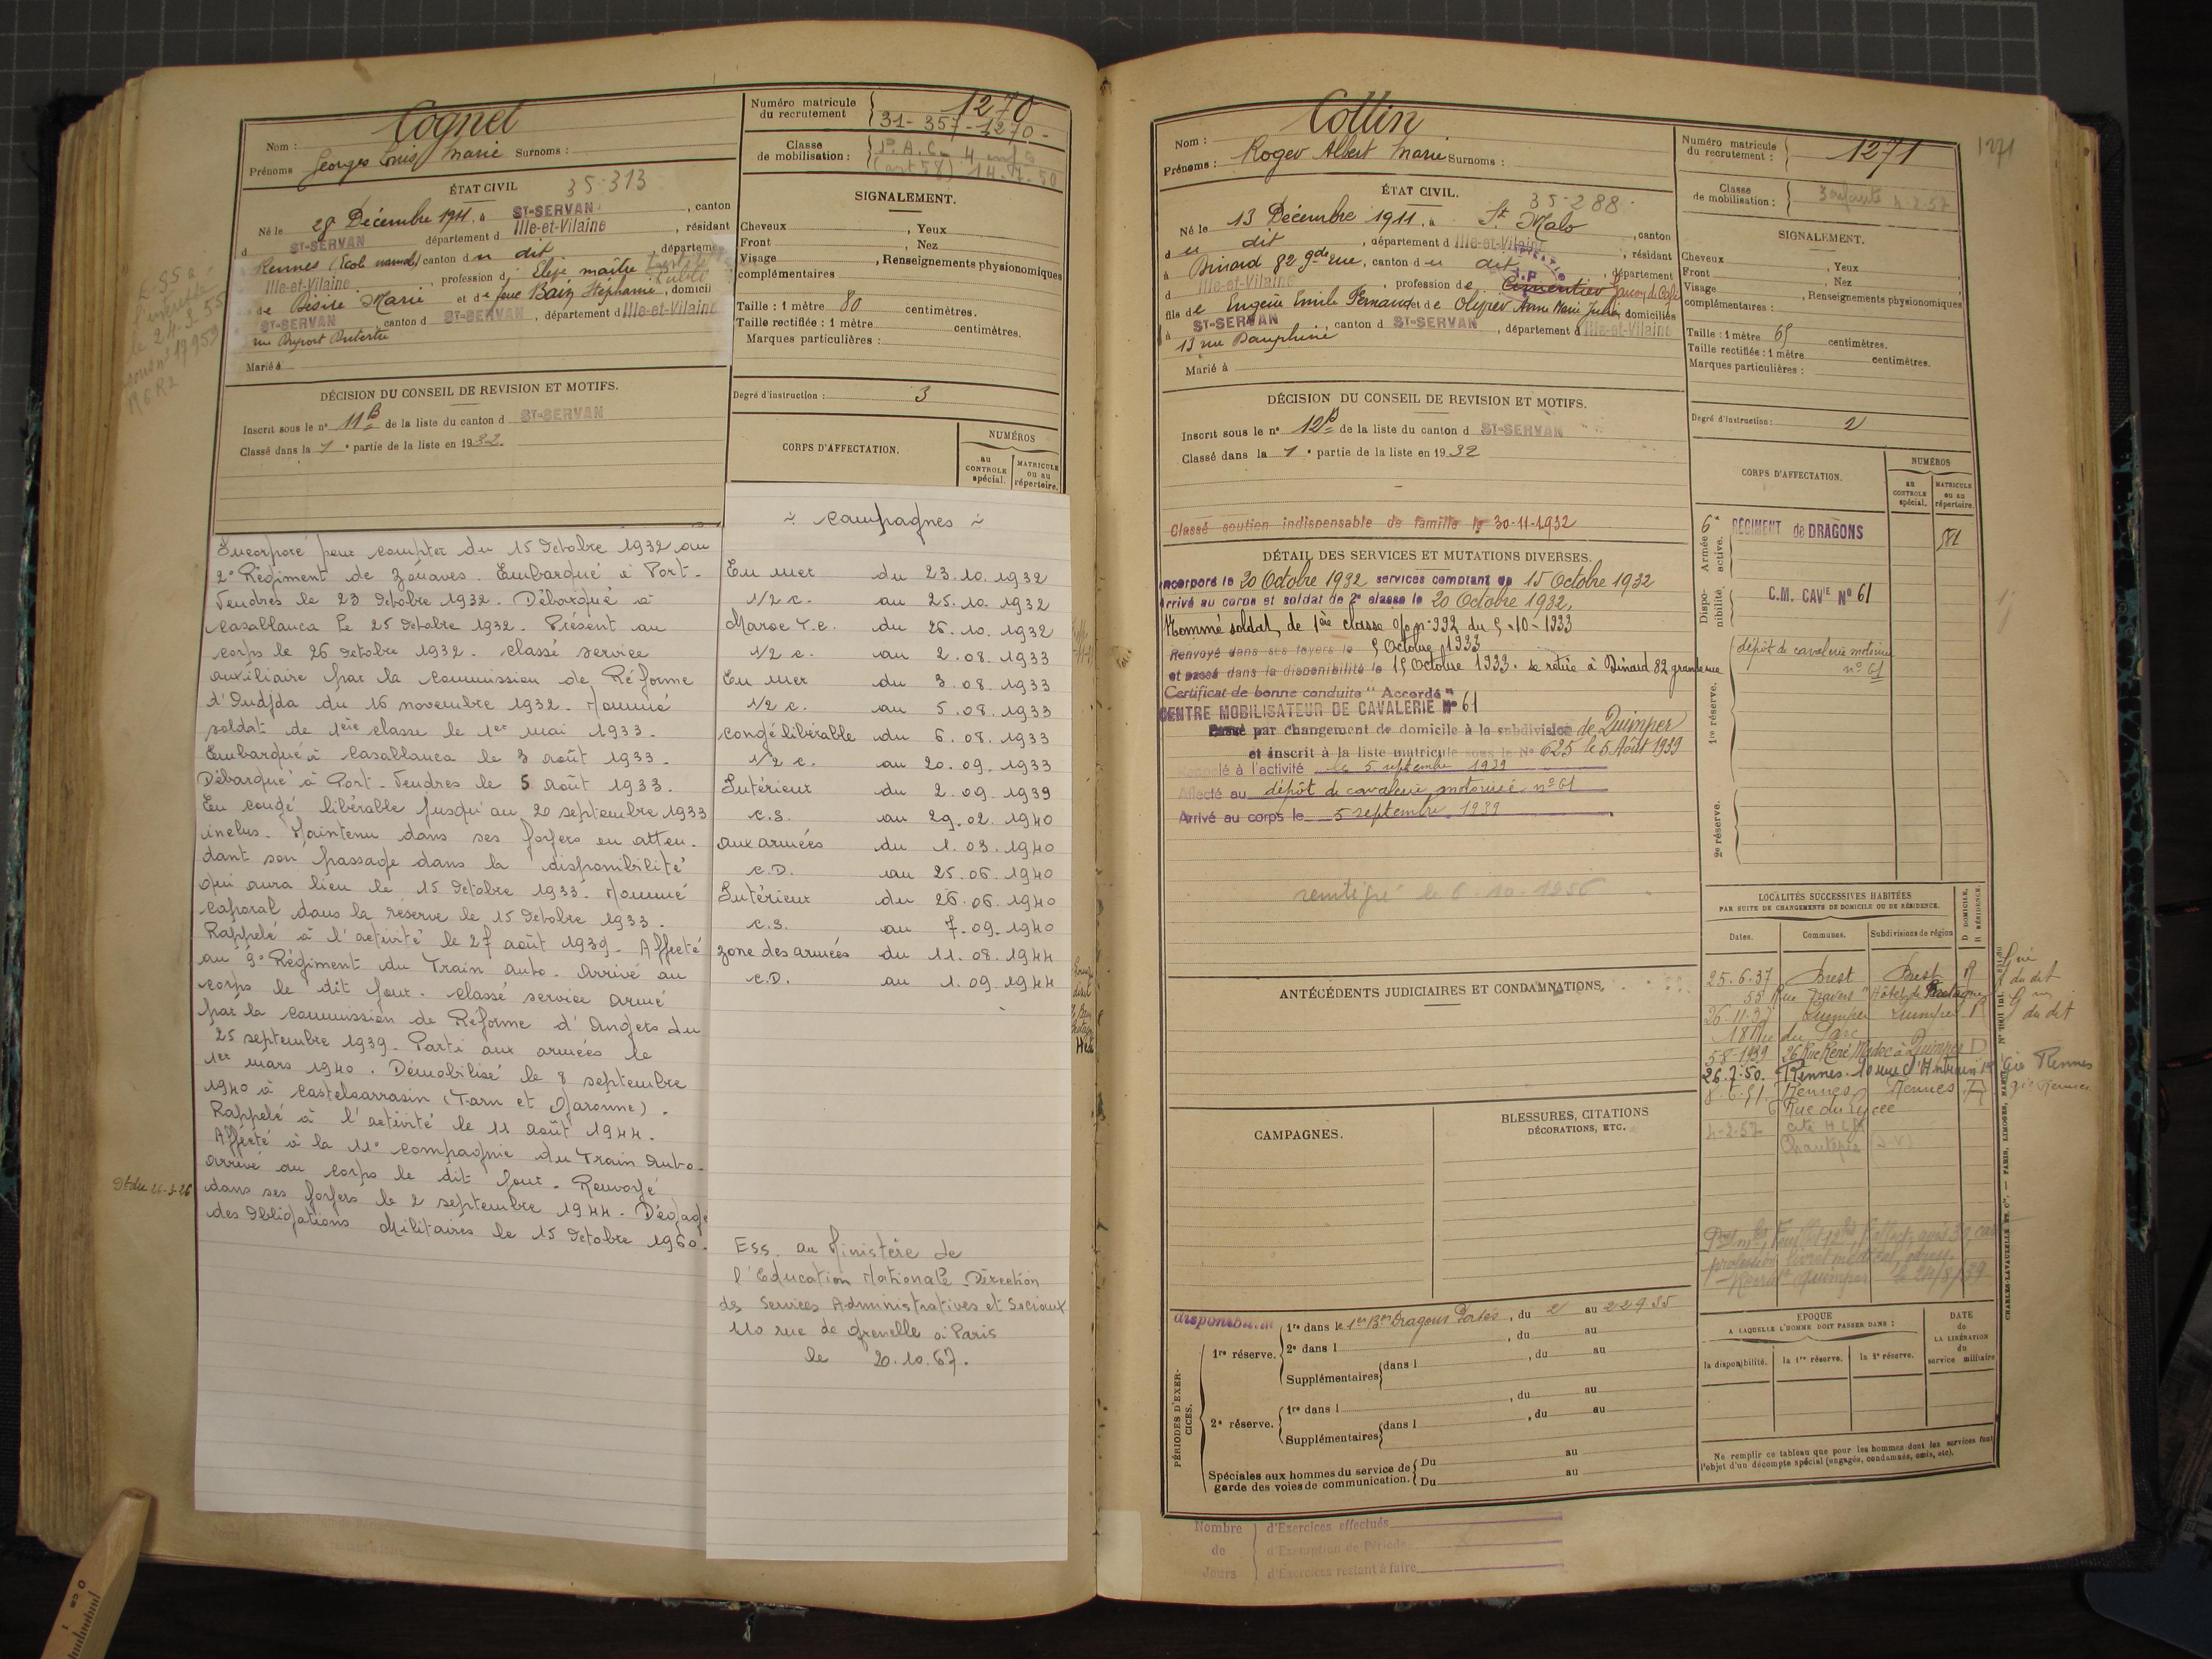 Nom : Cognet
Prénoms Georges Louis Marie Surnoms :
Numéro matricule du recrutement 1270
31-357-1270-
Classe de mobilisation : P.A.C. 4 enf
(art 58) 14.7.50
ÉTAT CIVIL
35-313
Né le 28 Décembre 1911, à ST-SERVAN, canton
d ST-SERVAN département d Ille-et-Vilaine, résidant
Rennes (Ecole normale) canton d u dit, département
Ille-et-Vilaine, profession d Elève maître
de Désiré Marie et de feue Bain Stéphanie, domicil
ST-SERVAN, canton d ST-SERVAN, département d Ille-et-Vilaine
rue
Marié à
SIGNALEMENT.
Cheveux , Yeux
Front , Nez
Visage , Renseignements physionomiques
complémentaires
Taille : 1 mètre 80 centimètres.
Taille rectifiée : 1 mètre centimètres.
Marques particulières :
Degré d'instruction : 3
DÉCISION DU CONSEIL DE REVISION ET MOTIFS.
Inscrit sous le n° 11B de la liste du canton d ST-SERVAN
Classé dans la 1e partie de la liste en 1932.
CORPS D'AFFECTATION.
NUMÉROS
au CONTROLE spécial.
MATRICULE ou au répertoire.
E.S.S. à
le 24.3.55
sous n° 17953
Incorporé pour compter du 15 Octobre 1932 au
2e Régiment de Zouaves. Embarqué à Port-
Vendres le 23 Octobre 1932. Débarqué à
Casablanca le 25 Octobre 1932. Présent au
corps le 26 Octobre 1932. classé service
auxiliaire par la commission de Réforme
d'Oudjda du 16 novembre 1932. Nommé
soldat de 1ère classe le 1er mai 1933.
Embarqué à Casablanca le 3 août 1933.
Débarqué à Port-Vendres le 5 Août 1933.
En congé libérable jusqu'au 20 septembre 1933
inclus. Maintenu dans ses foyers en atten-
dant son passage dans la disponibilité
qui aura lieu le 15 Octobre 1933. Nommé
caporal dans la réserve le 15 Octobre 1933.
Rappelé à l'activité le 27 août 1939. Affecté
au 9e Régiment du Train auto. Arrivé au
corps le dit jour. classé service armé
par la commission de Réforme d'Angers du
25 septembre 1939. Parti aux armées le
1er mars 1940. Démobilisé le 8 septembre
1940 à Castelsarrasin (Tarn et Garonne).
Rappelé à l'activité le 11 août 1944.
Affecté à la 11e compagnie du Train auto.
arrivé au corps le dit jour. Renvoyé
dans ses foyers le 2 septembre 1944. Dégagé
des Obligations Militaires le 15 Octobre 1960.
~ Campagnes ~
En mer du 23.10.1932
1/2 c. au 25.10.1932
Maroc T.C. du 26.10.1932
1/2 c. au 2.08.1933
En mer du 3.08.1933
1/2 c. au 5.08.1933
congé libérable du 6.08.1933
1/2 c. au 20.09.1933
Intérieur du 2.09.1939
C.S. au 29.02.1940
aux armées du 1.03.1940
C.D. au 25.06.1940
Intérieur du 26.06.1940
C.S. au 7.09.1940
zone des armées du 11.08.1944
C.D. au 1.09.1944
Ess. au Ministère de
l'Education Nationale Direction
ds Services Administratives et Sociaux
110 rue de Grenelle à Paris
le 20.10.67.
1271
Nom : Collin
Prénoms : Roger Albert Marie Surnoms :
Numéro matricule du recrutement : 1271
Classe de mobilisation : 3 enfants 4-2-57
ÉTAT CIVIL.
35-288
Né le 13 Décembre 1911, à St Malo, canton
d u dit, département d Ille-et-Vilaine, résidant
à Dinard 82 gde rue, canton d u dit, département
d Ille-et-Vilaine, profession d e Cimentier Garçon de Café
fils de Eugène Emile Fernand et de Olivier Anne Marie Julie, domiciliés
à ST-SERVAN, canton d ST-SERVAN, département d Ille-et-Vilaine
13 rue Dauphine
Marié à
SIGNALEMENT.
Cheveux , Yeux
Front , Nez
Visage , Renseignements physionomiques
complémentaires :
Taille : 1 mètre 65 centimètres.
Taille rectifiée : 1 mètre centimètres.
Marques particulières :
Degré d'instruction : 2
DÉCISION DU CONSEIL DE REVISION ET MOTIFS.
Inscrit sous le n° 12B de la liste du canton d ST-SERVAN
Classé dans la 1e partie de la liste en 1932
Classé soutien indispensable de famille le 30-11-1932
DÉTAIL DES SERVICES ET MUTATIONS DIVERSES.
Incorporé le 20 Octobre 1932 services comptant du 15 Octobre 1932
Arrivé au corps et soldat de 2e classe le 20 Octobre 1932,
Nommé soldat de 1ère classe o/o n° 992 du 5-10-1933
Renvoyé dans ses foyers le 5 Octobre 1933
et passé dans la disponibilité le 15 Octobre 1933. se retire à Dinard 82 grande rue
Certificat de bonne conduite "Accordé"
CENTRE MOBILISATEUR DE CAVALERIE N° 61
Passé par changement de domicile à la subdivision de Quimper
et inscrit à la liste matricule sous le N° 625 le 5 Août 1939
Rappelé à l'activité le 5 septembre 1939
Affecté au dépôt de cavalerie motorisé n° 61
Arrivé au corps le 5 septembre 1939
le 6-10-1956
CORPS D'AFFECTATION.
NUMÉROS
au CONTROLE spécial.
MATRICULE ou au répertoire.
Armée active.
6e RÉGIMENT de DRAGONS 581
Disponibilité.
C.M. CAVIE N° 61
1re réserve.
dépôt de cavalerie motorisé
n° 61
2e réserve.
ANTÉCÉDENTS JUDICIAIRES ET CONDAMNATIONS.
LOCALITÉS SUCCESSIVES HABITÉES
PAR SUITE DE CHANGEMENTS DE DOMICILE OU DE RÉSIDENCE.
D DOMICILE. R RÉSIDENCE.
Dates. Communes. Subdivisions de région
25.6.37 Brest Brest R
55 Rue "Hôtel de Bretagne"
26.11.37 Quimper Quimper R
18 Rue du Parc
5-8-1939 26 Rue René Madec à Quimper D
26.7.50. Rennes. 10 rue d'Antrain
8.6.51 Rennes Rennes
6 Rue du Lycée
4-2-57 Cité HLM
Chantepie (I-V)
CAMPAGNES.
BLESSURES, CITATIONS
DÉCORATIONS, ETC.
disponibilité
PÉRIODES D'EXERCICES.
1re réserve. 1re dans le 1er Bon Dragons Portés, du 2 au 22 9 35
2e dans l , du au
Supplémentaires dans l , du au
, du au
2e réserve. 1re dans l , du au
Supplémentaires dans l
Spéciales aux hommes du service de garde des voies de communication. Du au
Du au
EPOQUE
A LAQUELLE L'HOMME DOIT PASSER DANS :
la disponibilité. la 1re réserve. la 2e réserve.
DATE de LA LIBÉRATION du service militaire
Ne remplir ce tableau que pour les hommes dont les services font
l'objet d'un décompte spécial (engagés, condamnés, omis, etc).
CHARLES-LAVAUZELLE ET Cie. — PARIS, LIMOGES, NANCY
Nombre de Jours
d'Exercices effectués
d'Exemption de Période
d'Exercices restant à faire